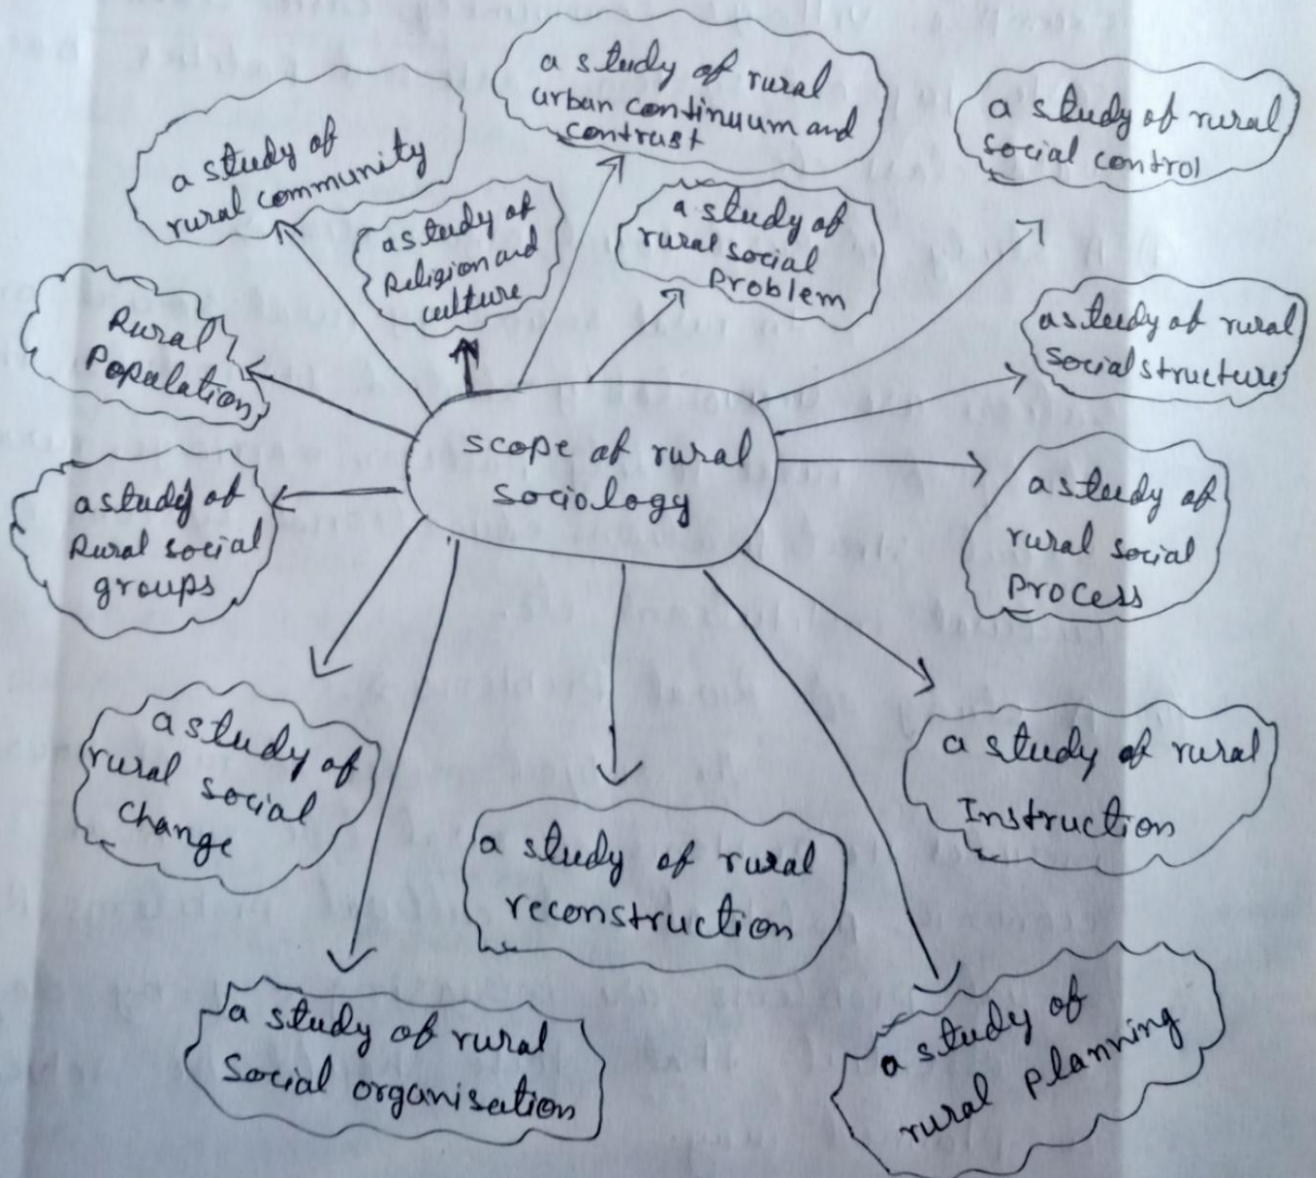 a study of rural
urban continuum and
contrast
a study of rural
social control
a study of
rural community
a study of
Religion and
culture
a study of
rural social
Problem
Rural
Population
a study of rural
social structure
scope of rural
sociology
a study of
Rural social
groups
a study of
rural social
Process
a study of
rural social
change
a study of rural
Instruction
a study of rural
reconstruction
a study of rural
Social organisation
a study of
rural planning